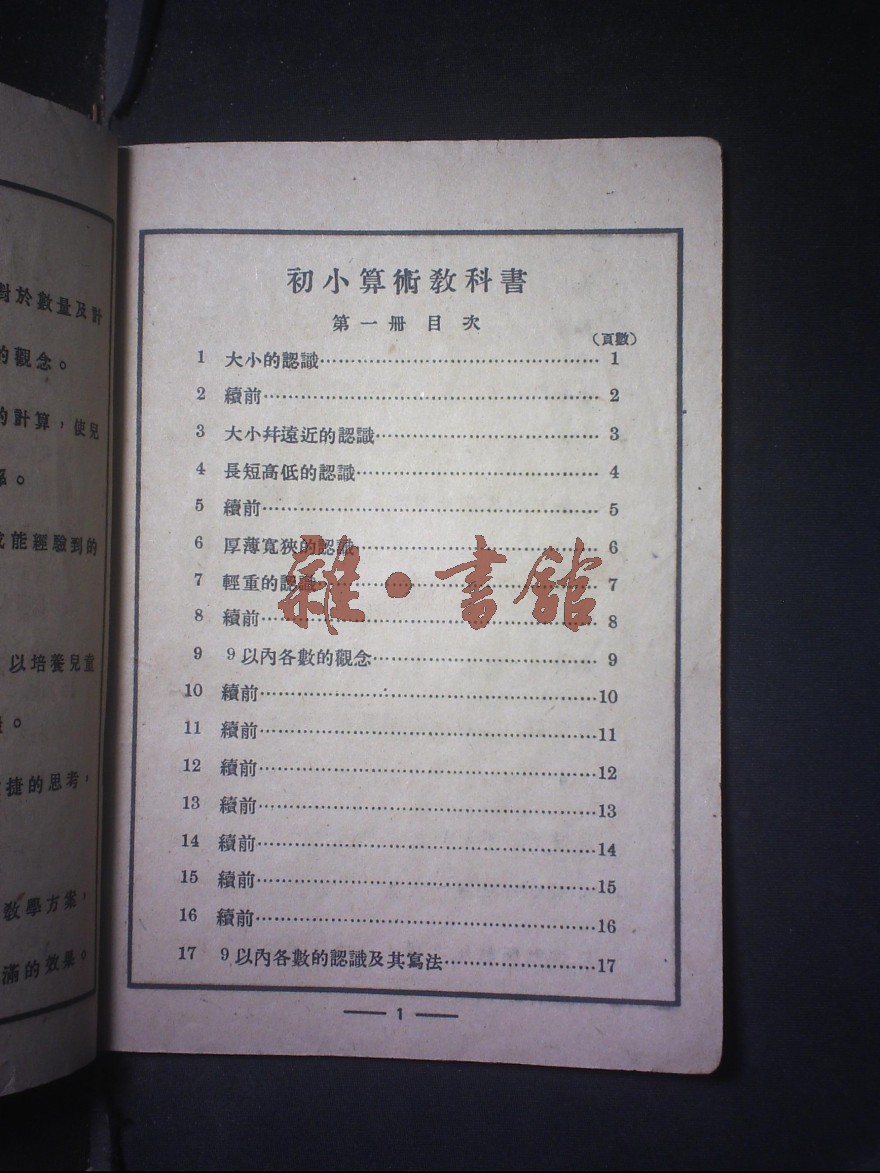 對於數量及計
的觀念。
的計算，使兒
係。
能經驗到的
以培養兒童
。
捷的思考，
教學方案，
滿的效果。
初小算術教科書
第一冊 目次
（頁數）
1 大小的認識……………………………………1
2 續前……………………………………2
3 大小幷遠近的認識……………………………………3
4 長短高低的認識……………………………………4
5 續前……………………………………5
6 厚薄寬狹的認識……………………………………6
7 輕重的認識……………………………………7
8 續前……………………………………8
9 9以內各數的觀念……………………………………9
10 續前……………………………………10
11 續前……………………………………11
12 續前……………………………………12
13 續前……………………………………13
14 續前……………………………………14
15 續前……………………………………15
16 續前……………………………………16
17 9以內各數的認識及其寫法……………………17
雜·書館
— 1 —